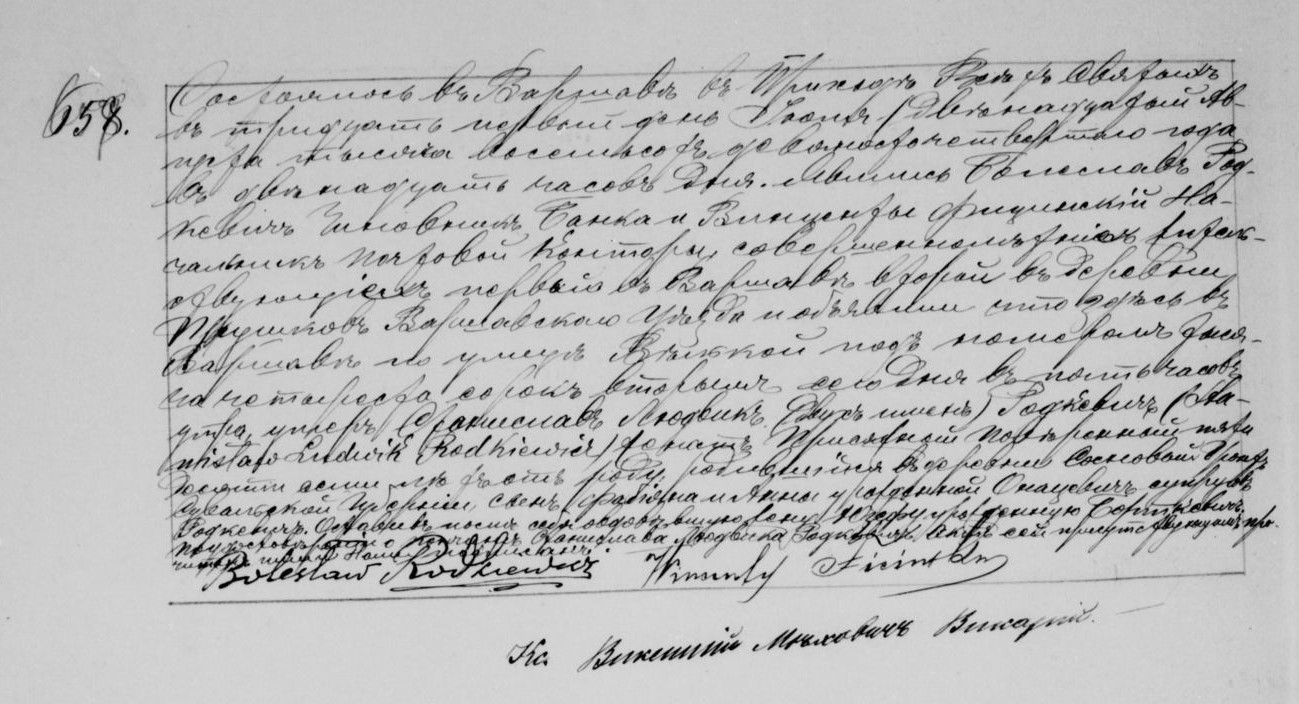 658.
Состоялось въ Варшавѣ въ Приходѣ Всѣхъ Святыхъ
въ тридцать первый день Іюля / двѣнадцатый Ав-
густа тысяча восемьсотъ девяносто четвертаго года
въ двѣнадцать часовъ дня. Явились Болеславъ Род-
кевичъ Чиновникъ Банка и Винценты Фицинскій На-
чальникъ Почтовой Конторы, совершеннолѣтніе, житель-
ствующіе первый въ Варшавѣ второй въ деревни
Прушковъ Варшавскаго Уѣзда и объявили что здѣсь въ
Варшавѣ по улицѣ подъ номеромъ тыся-
ча четыреста сорокъ вторымъ сего дня въ пять часовъ
утра, умеръ Станиславъ Людвикъ (двухъ именъ) Родкевичъ (Sta-
nisław Ludwik Rodkiewicz) Присяжный Повѣренный пяти
десяти лѣтъ отъ роду, родившійся въ деревни Сосновый
Сувалкской Губерніи, сынъ Фабіана и Анны урожденной Онацевичъ супруговъ
Родкевичъ. Оставивъ послѣ себя овдовѣвшую жену урожденную
По удостовѣреніи о кончинѣ Станислава Людвика Родкевичъ. Актъ сей присутствующимъ про-
читанъ Нами подписанъ.
Bolesław Rodkiewicz Wincenty Ficiński
Кс. Викентій Мѣховичъ Викарій.